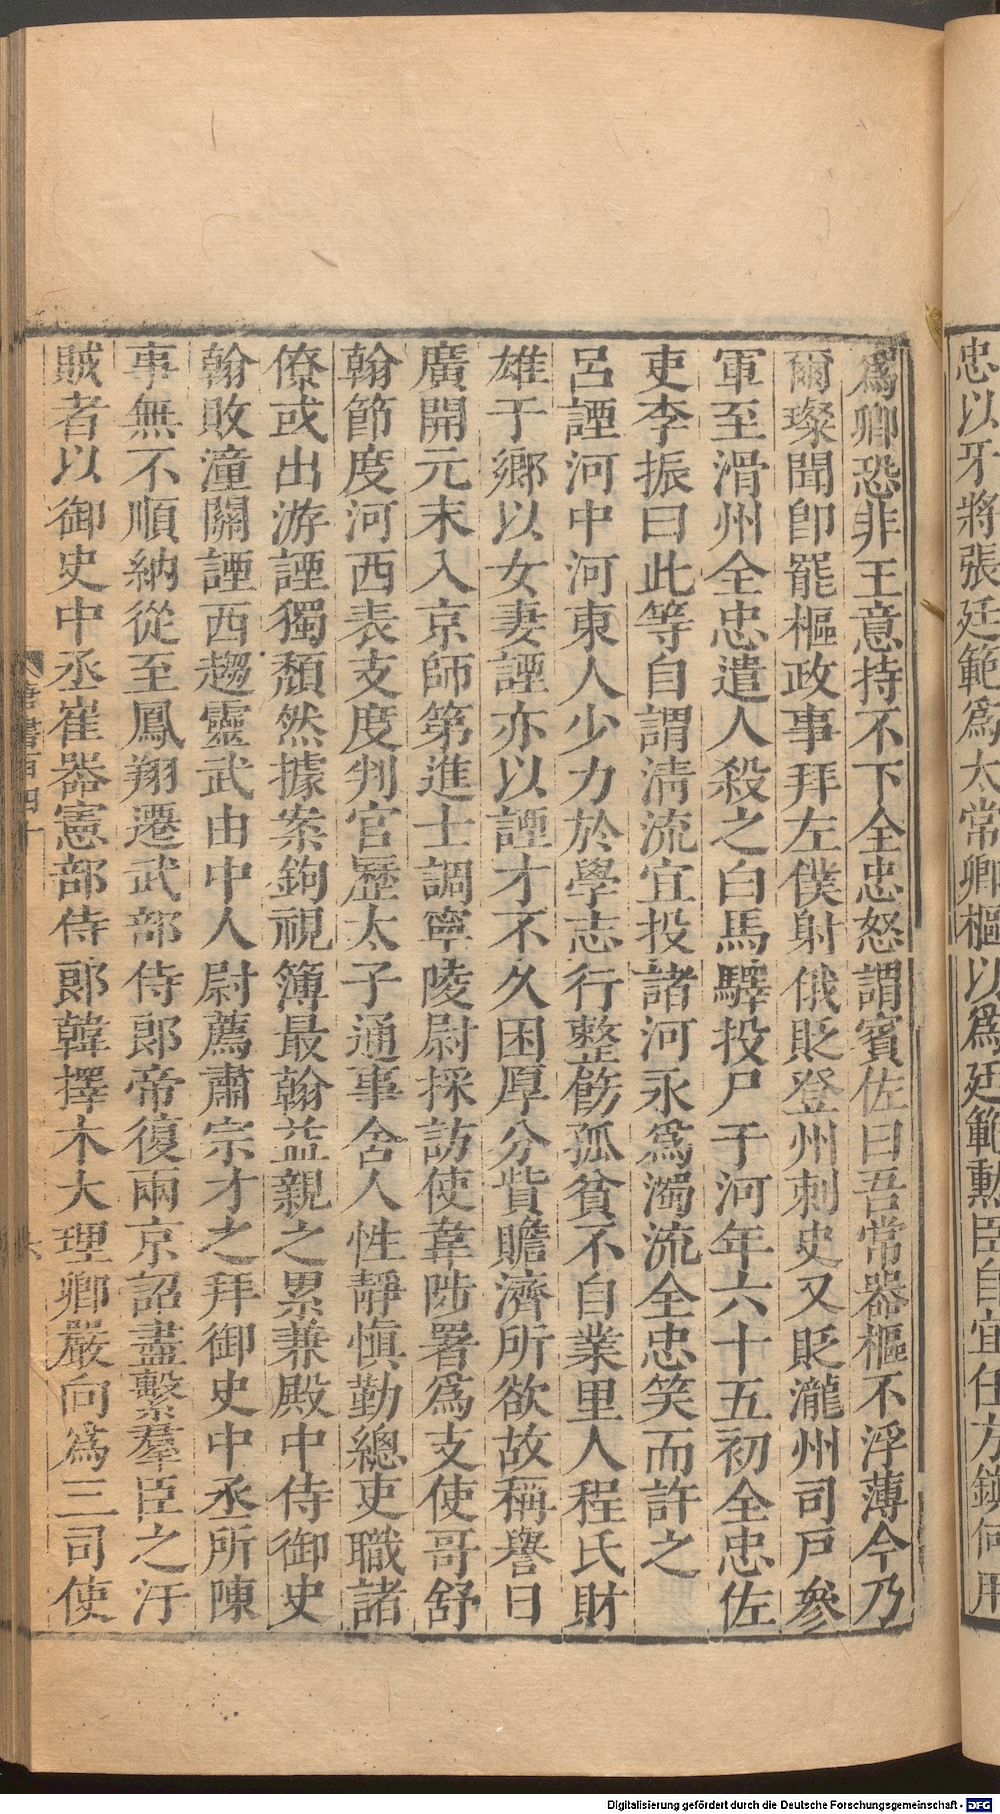 忠以牙將張廷範爲太常卿樞以爲廷範勲臣自宜任方鎮何用
爲卿恐非王意持不下全忠怒謂賓佐曰吾常器樞不浮薄今乃
爾璨聞卽罷樞政事拜左僕射俄貶登州刺史又貶瀧州司戸參
軍至滑州全忠遣人殺之白馬驛投尸于河年六十五初全忠佐
吏李振曰此等自謂清流宜投諸河永爲濁流全忠笑而許之
呂諲河中河東人少力於學志行整飭孤貧不自業里人程氏財
雄于鄉以女妻諲亦以諲才不久困厚分貲贍濟所欲故稱譽日
廣開元末入京師第進士調寧陵尉採訪使韋陟署爲支使哥舒
翰節度河西表支度判官歷太子通事舍人性靜愼勤總吏職諸
僚或出游諲獨頽然據案鉤視簿最翰益親之累兼殿中侍御史
翰敗潼關諲西趨靈武由中人尉薦肅宗才之拜御史中丞所陳
事無不順納從至鳳翔遷武部侍郎帝復兩京詔盡繫羣臣之汙
賊者以御史中丞崔器憲部侍郎韓擇木大理卿嚴向爲三司使
唐書百四十
六
Digitalisierung gefördert durch die Deutsche Forschungsgemeinschaft - DFG